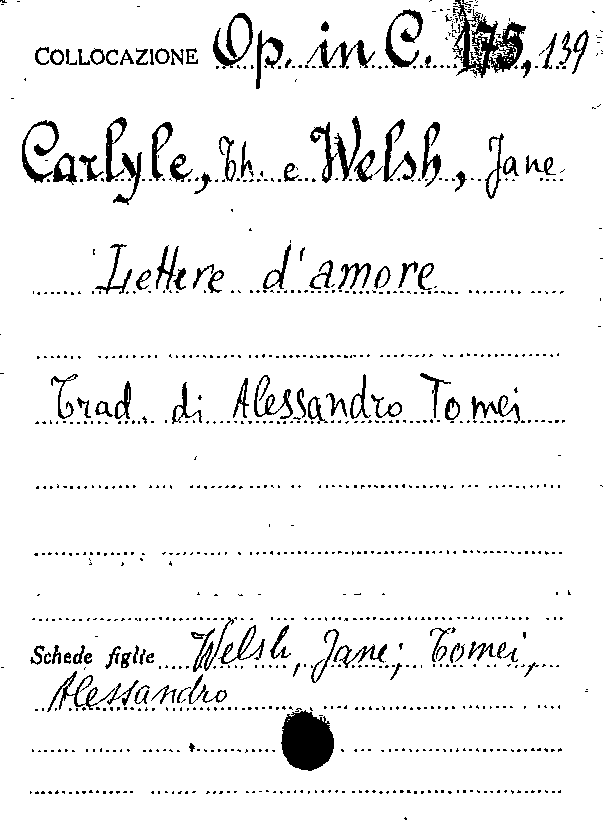 COLLOCAZIONE Op. in C. 175, 139
Carlyle, Th. e Welsh, Jane
Lettere d'amore
Trad. di Alessandro Tomei
Schede figlie Welsh, Jane; Tomei,
Alessandro